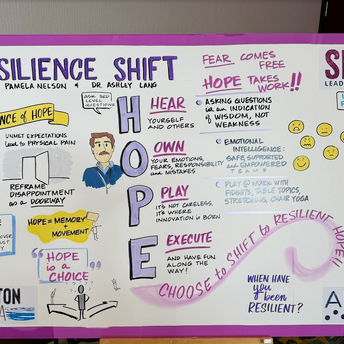 SILIENCE SHIFT
PAMELA NELSON & DR ASHLEY LANG
ASK 3RD
LEVEL
QUESTIONS
FEAR COMES
FREE
HOPE TAKES
WORK!!
LEAD
NCE OF HOPE
UNMET EXPECTATIONS
lead to PHYSICAL PAIN
REFRAME
DISAPPOINTMENT
as a DOORWAY
HOPE = MEMORY
+
MOVEMENT
"HOPE
is a
CHOICE"
TON
HOPE
HEAR
YOURSELF
AND OTHERS
OWN
YOUR EMOTIONS,
FEARS, RESPONSIBILITY
and MISTAKES
PLAY
IT'S NOT CARELESS,
IT'S WHERE
INNOVATION IS BORN
EXECUTE
AND HAVE FUN
ALONG THE
WAY!
ASKING QUESTIONS
is an INDICATION
of WISDOM, NOT
WEAKNESS
EMOTIONAL
INTELLIGENCE:
SAFE, SUPPORTED
and EMPOWERED
TEAMS
PLAY @ WORK WITH
FIDGETS, TABLE TOPICS,
STRETCHING, CHAIR YOGA
CHOOSE to SHIFT to RESILIENT HOPE!!
WHEN HAVE
you been
RESILIENT?